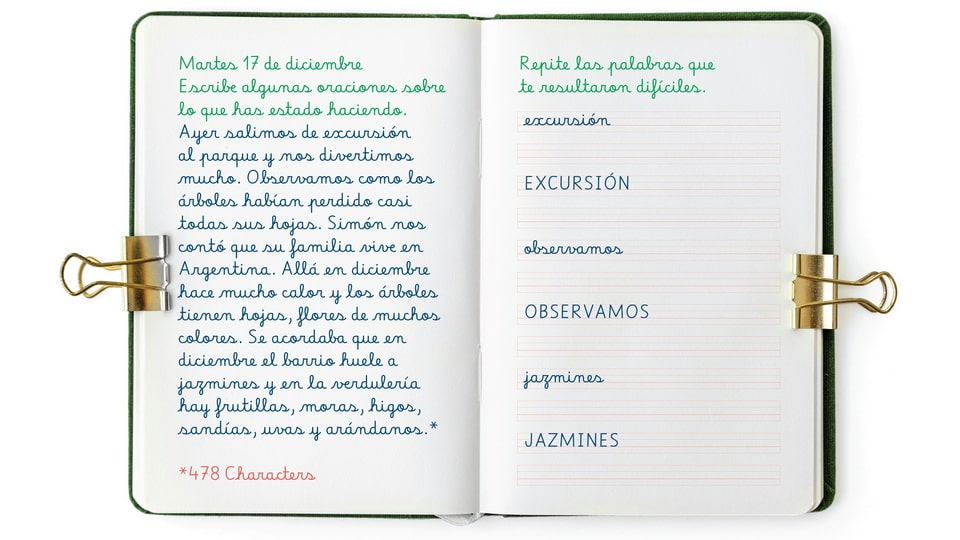 Martes 17 de diciembre
Escribe algunas oraciones sobre
lo que has estado haciendo.
Ayer salimos de excursión
al parque y nos divertimos
mucho. Observamos como los
árboles habían perdido casi
todas sus hojas. Simón nos
contó que su familia vive en
Argentina. Allá en diciembre
hace mucho calor y los árboles
tienen hojas, flores de muchos
colores. Se acordaba que en
diciembre el barrio huele a
jazmines y en la verdulería
hay frutillas, moras, higos,
sandías, uvas y arándanos.*
*478 Characters
Repite las palabras que
te resultaron difíciles.
excursión
EXCURSIÓN
observamos
OBSERVAMOS
jazmines
JAZMINES